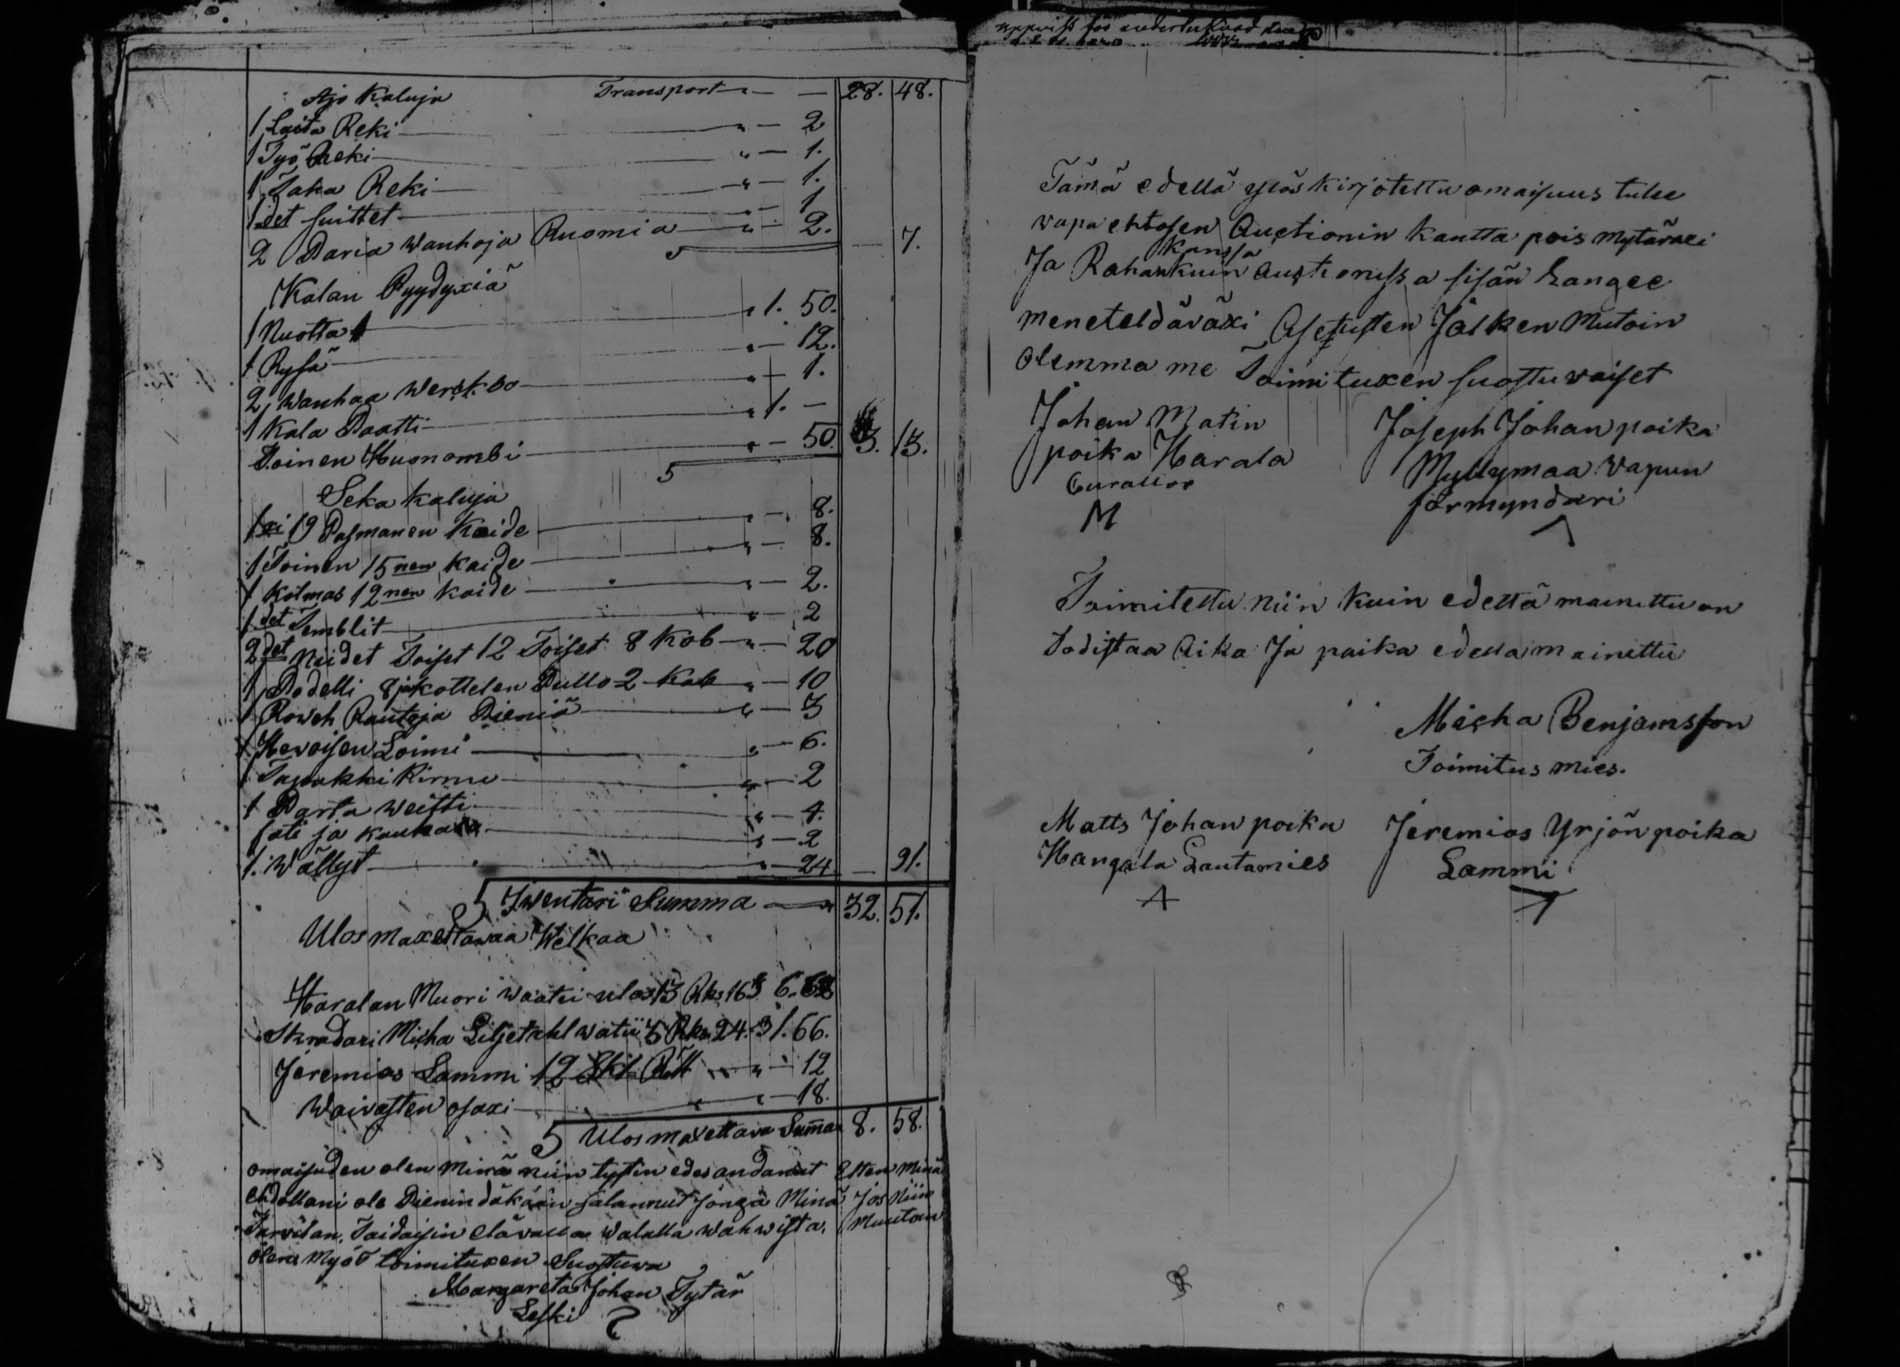 Ajo Kaluja Transport " — 28. 48.
1 Laita Reki " — 2
1 Työ Reki " — 1.
1 Taka Reki " — 1.
1 det suittet " — 1
2 Paria wanhoja Ruomia " — 2. — 7.
Kalan Pyydyxiä
1 Nuotta " 1. 50.
1 Rysä " — 12.
2 Wanhaa Werkko " — 1.
1 Kala Paatti " 1. —
Toinen Huonombi " — 50 3. 13.
Seka Kaluja
1xi 19 Pasmanen Kaide " — 8.
1 Toinen 15 nen Kaide " — 8.
1 Kolmas 12 nen Kaide " — 2.
1 det Temblit " — 2
2 det Niidet Toiset 12 Toiset 8 Kob " — 20
1 Podelli Pullo 2 Kob " — 10
1 Rautoja Pieniä " — 3
1 Hevoisen Loimi " — 6.
1 Tupakki Kirnu " — 2
1 Parta weitti " — 4.
" — 2
1. Wällyt " — 24 — 91.
S Inventari Summa " 32. 51.
Ulos maxettavaa Welkaa
Haralan Muori waatii ulos 13 Rks 16 s 6. 68
Skradari Micha Liljetahl watii 3 Rks 24. s 1. 66.
Jeremias Lammi 12 Skl Rtt " — 12
Waivasten osaxi " — 18.
S Ulos maxettava Summa 8. 58.
omaisuden olen Minä niin tystin edes andanut Etten Minä
ehdollani ole Pienindäkään salannut Jonga Minä Jos Niin
Tarvitan, Taidaisin elävällä Walalla wahwista. Muutoin
olen Myös toimituxen Suostuva
Margareta Johan Tytär
Leski
Tämä edellä ylös kirjotettu omaisuus tulee
vapa ehtosen Auctionin kautta pois mytäväxi
Ja Rahan kanssa kuin Auctionissa sisän Langee
meneteldäväxi Asetusten Jälken Mutoin
Olemma me Toimituxen suostuvaiset
Johan Matin
poika Harala
Curattor
M
Joseph Johan poika
Myllymaa Vapun
förmyndari
Toimitettu niin kuin edellä mainittu on
Todistaa Aika Ja paika edellä mainittu
Micha Benjamsson
Toimitus mies.
Matts Johan poika
Hangala Lautamies
Jeremias Yrjön poika
Lammi